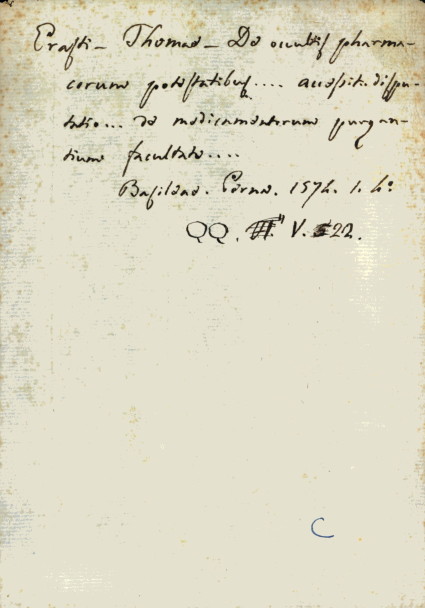 Erasti - Thomae - De occultis pharma-
corum potestatibus.... accessit. dispu-
tatio... de medicamentorum purgan-
tium facultate....
Basileae. Perna. 1574. 1. 4º
QQ. V. 22.
C